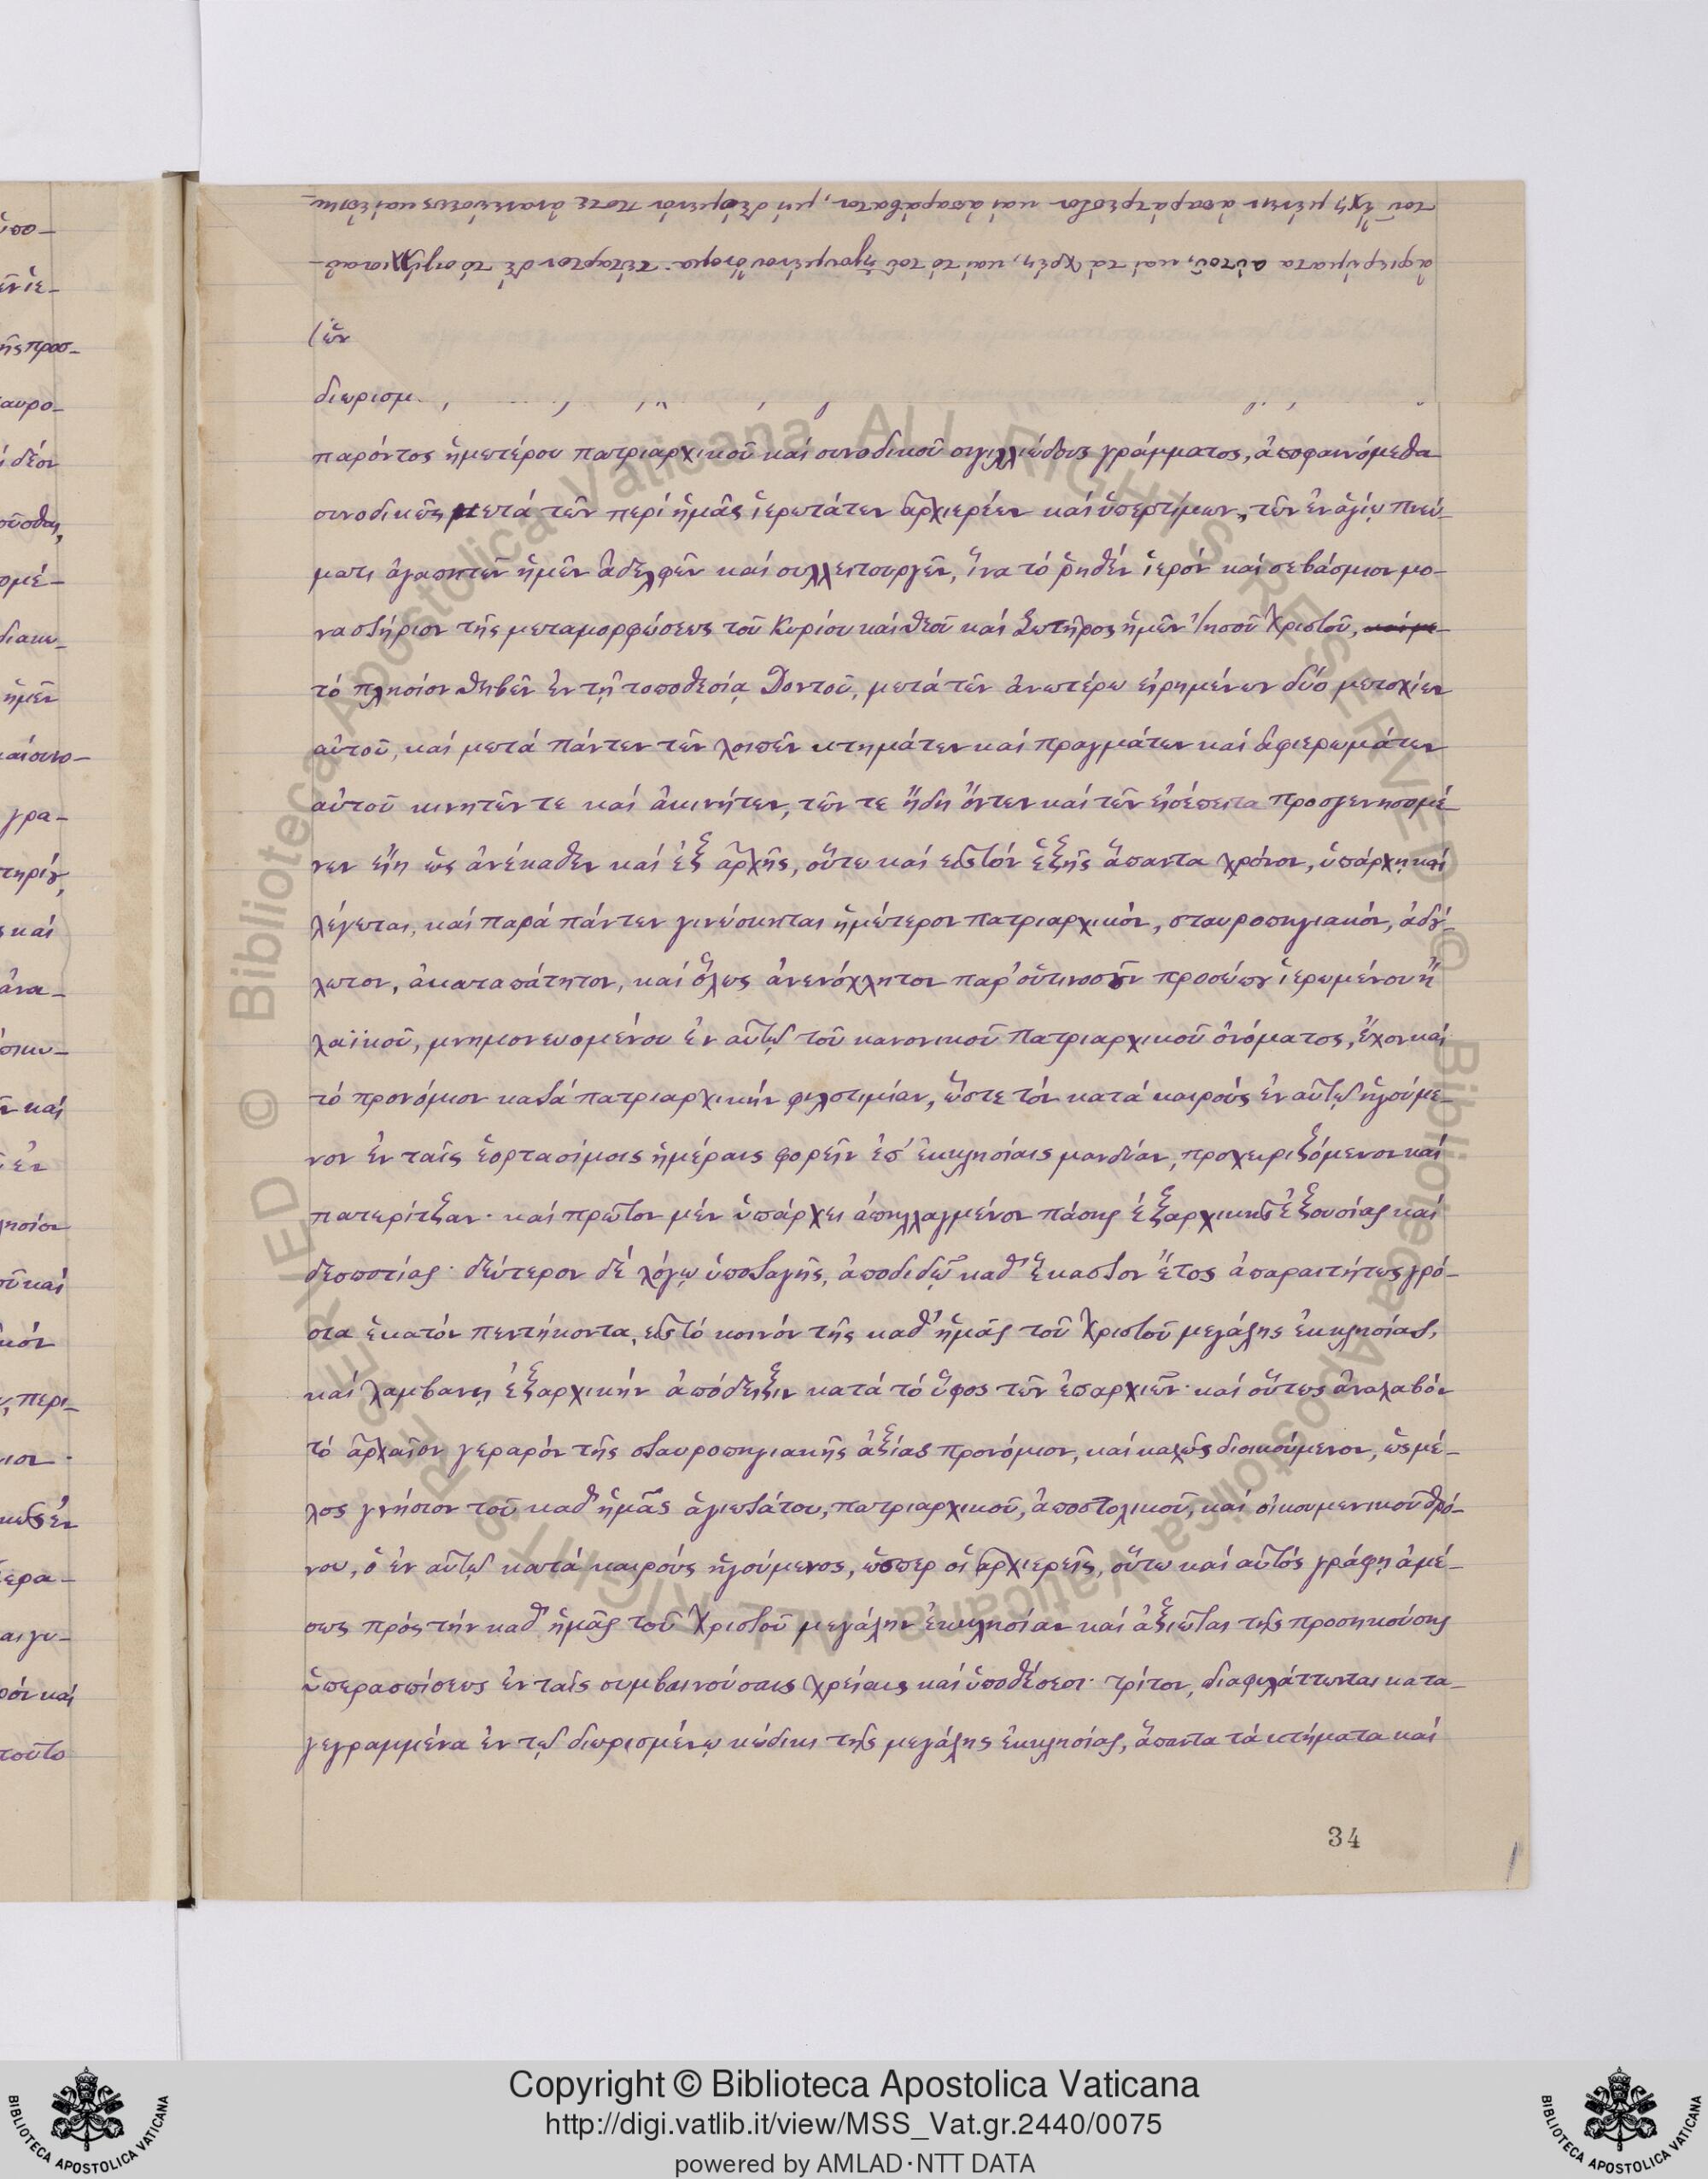 τοῦ ἔχῃ μένειν ἀπαράτρεπτον καί ἀπαράβατον, μή δεόμενόν ποτε ἀνανεώσεως καί ἐπικυ-
ἀφιερώματα αὐτοῦ, καί τά χρέη, καί τό τοῦ ἡγουμένου ὄνομα· τέταρτον δέ τό σιγίλλιον αὐ-
διωρισμ
παρόντος ἡμετέρου πατριαρχικοῦ καί συνοδικοῦ σιγιλλιώδους γράμματος, ἀποφαινόμεθα
συνοδικῶς μετά τῶν περί ἡμᾶς ἱερωτάτων ἀρχιερέων καί ὑπερτίμων, τῶν ἐν ἁγίῳ πνεύ-
ματι ἀγαπητῶν ἡμῶν ἀδελφῶν καί συλλειτουργῶν, ἵνα τό ῥηθέν ἱερόν καί σεβάσμιον μο-
ναστήριον τῆς μεταμορφώσεως τοῦ Κυρίου καί Θεοῦ καί Σωτῆρος ἡμῶν Ἰησοῦ Χριστοῦ,
τό πλησίον Θηβῶν ἐν τῇ τοποθεσίᾳ Δοντοῦ, μετά τῶν ἀνωτέρω εἰρημένων δύο μετοχίων
αὐτοῦ, καί μετά πάντων τῶν λοιπῶν κτημάτων καί πραγμάτων καί ἀφιερωμάτων
αὐτοῦ κινητῶν τε καί ἀκινήτων, τῶν τε ἤδη ὄντων καί τῶν εἰσέπειτα προσγενησομέ-
νων εἴη ὡς ἀνέκαθεν καί ἐξ ἀρχῆς, οὕτω καί εἰς τόν ἑξῆς ἅπαντα χρόνον, ὑπάρχῃ καί
λέγεται, καί παρά πάντων γινώσκηται ἡμέτερον πατριαρχικόν, σταυροπηγιακόν, ἀδού-
λωτον, ἀκαταπάτητον, καί ὅλως ἀνενόχλητον παρ' οὑτινοσοῦν προσώπου ἱερωμένου ἤ
λαϊκοῦ, μνημονευομένου ἐν αὐτῷ τοῦ κανονικοῦ Πατριαρχικοῦ ὀνόματος, ἔχον καί
τό προνόμιον κατά πατριαρχικήν φιλοτιμίαν, ὥστε τόν κατά καιρούς ἐν αὐτῷ ἡγούμε-
νον ἐν ταῖς ἑορτασίμοις ἡμέραις φορεῖν ἐπ' ἐκκλησίαις μανδύαν, προχειριζόμενον καί
πατερίτζαν· καί πρῶτον μέν ὑπάρχει ἀπηλλαγμένον πάσης ἐξαρχικῆς ἐξουσίας καί
δεσποτίας· δεύτερον δέ λόγῳ ὑποταγῆς, ἀποδιδῷ καθ' ἕκαστον ἔτος ἀπαραιτήτως γρό-
σια ἑκατόν πεντήκοντα, εἰς τό κοινόν τῆς καθ' ἡμᾶς τοῦ Χριστοῦ μεγάλης ἐκκλησίας,
καί λαμβανῃ ἐξαρχικήν ἀπόδειξιν κατά τό ὕφος τῶν ἐπαρχιῶν· καί οὕτως ἀναλαβόν
τό ἀρχαῖον γεραρόν τῆς σταυροπηγιακῆς ἀξίας προνόμιον, καί καλῶς διοικούμενον, ὡς μέ-
λος γνήσιον τοῦ καθ' ἡμᾶς ἁγιωτάτου, πατριαρχικοῦ, ἀποστολικοῦ, καί οἰκουμενικοῦ θρό-
νου, ὁ ἐν αὐτῷ κατά καιρούς ἡγούμενος, ὥσπερ οἱ ἀρχιερεῖς, οὕτω καί αὐτός γράφῃ ἀμέ-
σως πρός τήν καθ' ἡμᾶς τοῦ Χριστοῦ μεγάλην ἐκκλησίαν καί ἀξιῶται τῆς προσηκούσης
ὑπερασπίσεως ἐν ταῖς συμβαινούσαις χρείαις καί ὑποθέσεσι· τρίτον, διαφυλάττωνται κατα-
γεγραμμένα ἐν τῷ διωρισμένῳ κώδικι τῆς μεγάλης ἐκκλησίας, ἅπαντα τά κτήματα καί
34
Copyright © Biblioteca Apostolica Vaticana
http://digi.vatlib.it/view/MSS_Vat.gr.2440/0075
powered by AMLAD·NTT DATA